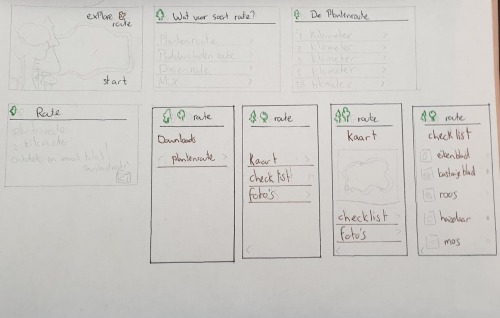 explore &
route
start
Wat voor soort route?
Plantenroute
Paddenstoelen route
Dierenroute
Mix
De Plantenroute
1 kilometer
2 kilometer
3 kilometer
5 kilometer
10 kilometer
Route
plantenroute
route
Downloads
plantenroute
route
Kaart
checklist
foto's
route
kaart
checklist
foto's
route
checklist
eikenblad
roos
hazelaar
mos